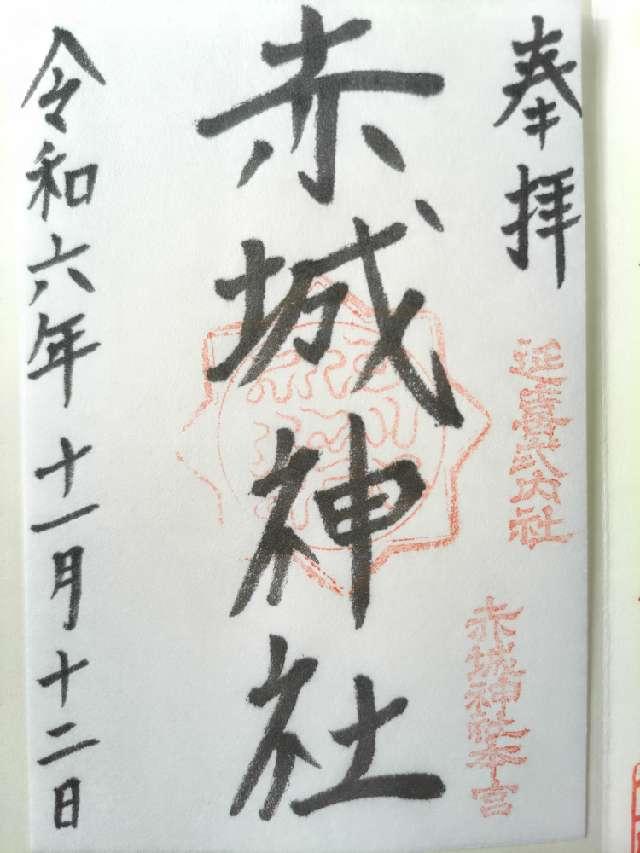 奉拝
延喜式内社
赤城神社本宮
赤城神社
令和六年十一月十二日